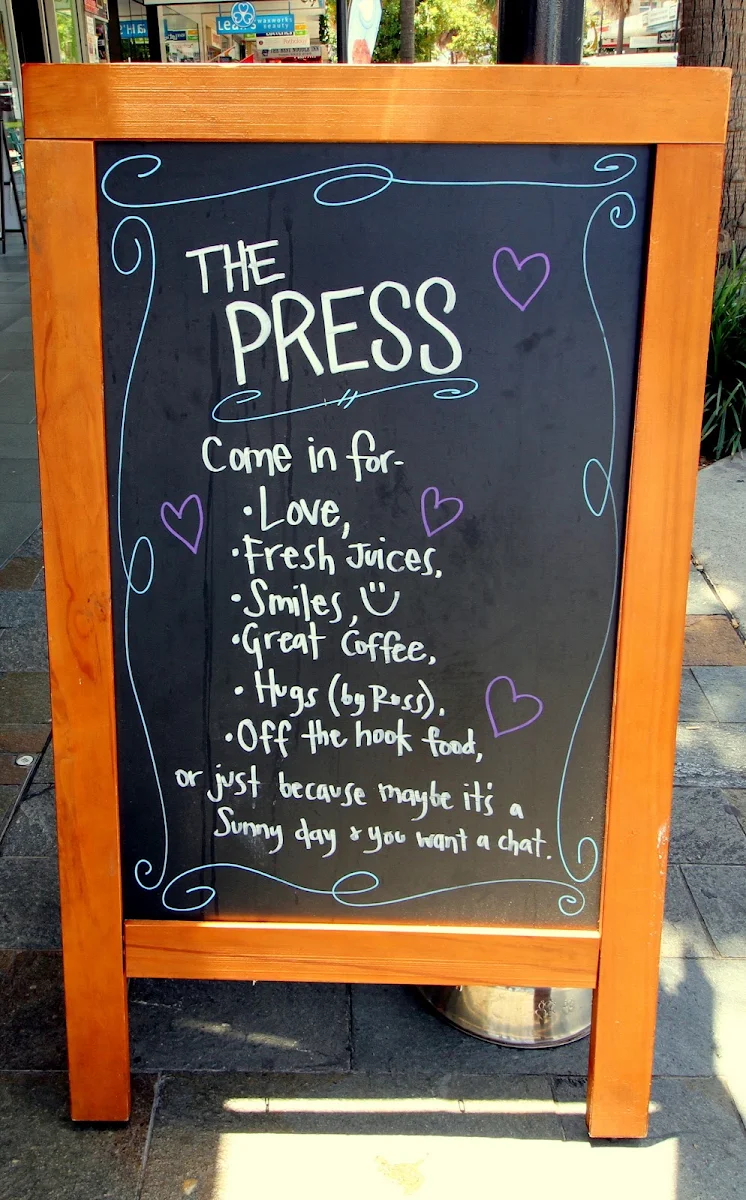 waxworks
beauty
THE
PRESS
Come in for-
• Love,
• Fresh Juices,
• Smiles,
• Great Coffee,
• Hugs (by Ross),
• Off the hook food,
or just because maybe it's a
Sunny day & you want a chat.